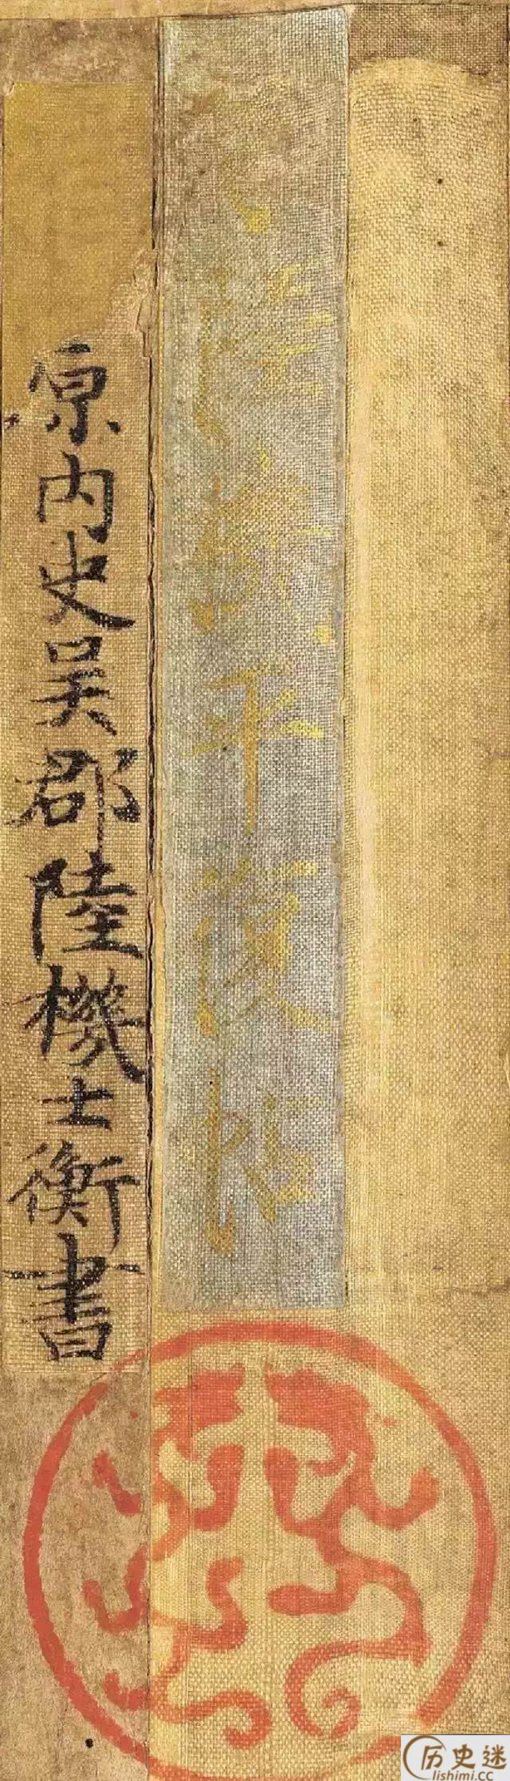 陸機平復帖
原内史吳郡陸機士衡書
历史迷
lishimi.cc